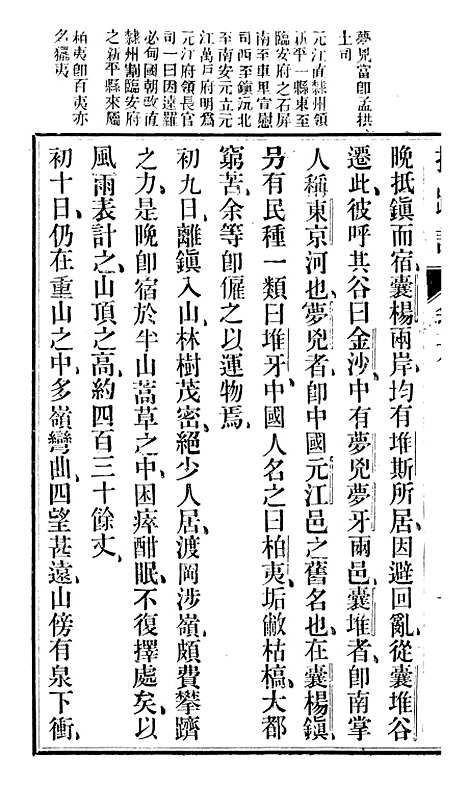 夢兇當即孟拱
土司
元江直隸州領
新平一縣東至
臨安府之石屏
南至車里宣慰
司西至鎮沅北
至南安元立元
江萬戶府明爲
元江府領長官
司一曰因遠羅
必甸國朝改直
隸州割臨安府
之新平縣來屬
柏夷卽百夷亦
名玀夷
晚抵鎮而宿囊楊兩岸均有堆斯所居因避回亂從囊堆谷
遷此彼呼其谷曰金沙中有夢兇夢牙兩邑囊堆者卽南掌
人稱東京河也夢兇者卽中國元江邑之舊名也在囊楊鎮
另有民種一類曰堆牙中國人名之曰柏夷垢敝枯槁大都
窮苦余等卽僱之以運物焉
初九日離鎮入山林樹茂密絕少人居渡岡涉嶺頗費攀躋
之力是晚卽宿於半山蒿草之中困瘁酣眠不復擇處矣以
風雨表計之山頂之高約四百三十餘丈
初十日仍在重山之中多嶺彎曲四望甚遠山傍有泉下衝